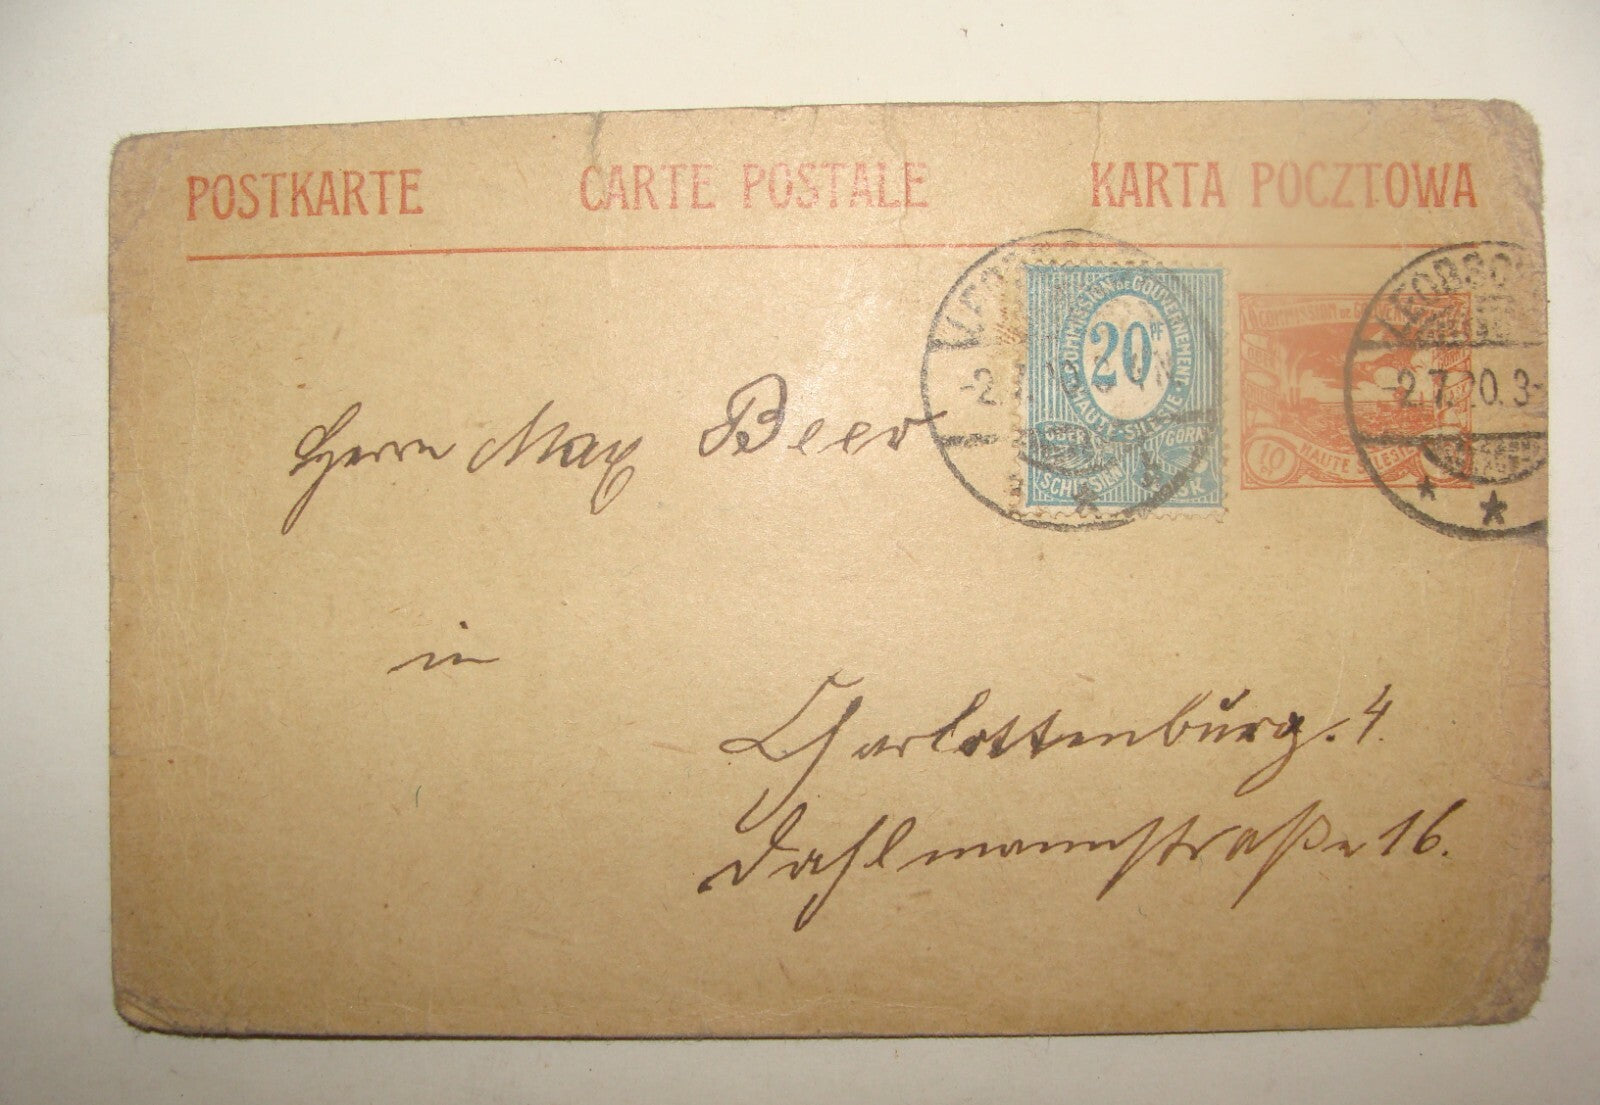 POSTKARTE CARTE POSTALE KARTA POCZTOWA
COMMISSION DE GOUVERNEMENT · HAUTE-SILESIE ·
20
OBER
SCHLESIEN
COMMISSION DE
10
HAUTE SILESIE
2.7.20.3-
Herrn Max Beer
in
Charlottenburg. 4.
Dahlmannstraße 16.